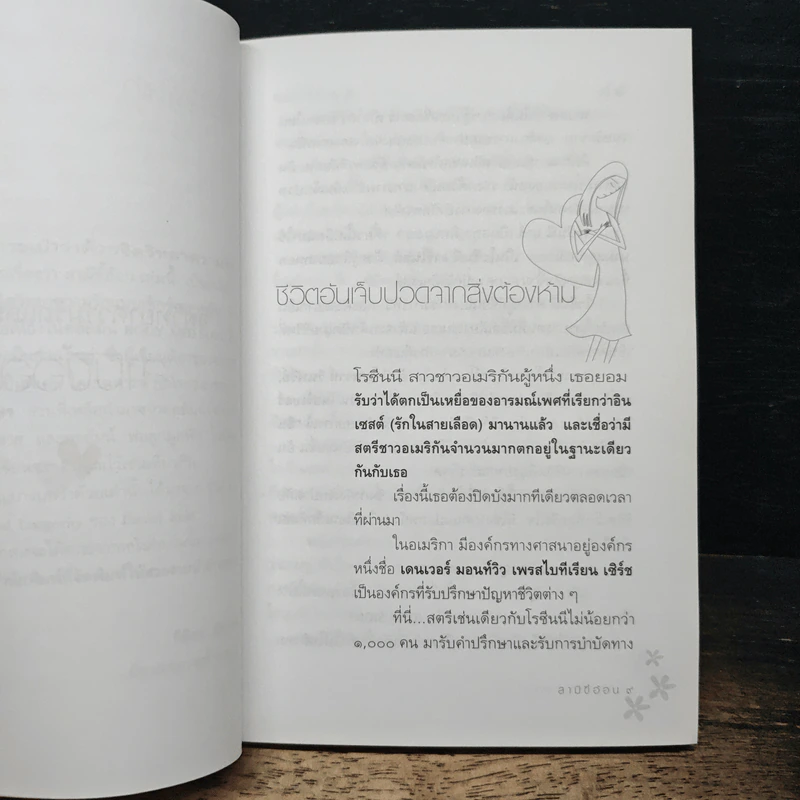 ชีวิตอันเจ็บปวดจากสิ่งต้องห้าม
โรซีนนี สาวชาวอเมริกันผู้หนึ่ง เธอยอม
รับว่าได้ตกเป็นเหยื่อของอารมณ์เพศที่เรียกว่าอิน
เซสต์ (รักในสายเลือด) มานานแล้ว และเชื่อว่ามี
สตรีชาวอเมริกันจำนวนมากตกอยู่ในฐานะเดียว
กันกับเธอ
เรื่องนี้เธอต้องปิดบังมากทีเดียวตลอดเวลา
ที่ผ่านมา
ในอเมริกา มีองค์กรทางศาสนาอยู่องค์กร
หนึ่งชื่อ เดนเวอร์ มอนท์วิว เพรสไบทีเรียน เซิร์ช
เป็นองค์กรที่รับปรึกษาปัญหาชีวิตต่าง ๆ
ที่นี่...สตรีเช่นเดียวกับโรซีนนีไม่น้อยกว่า
๑,๐๐๐ คน มารับคำปรึกษาและรับการบำบัดทาง
สามีขี้ฮอน ๙